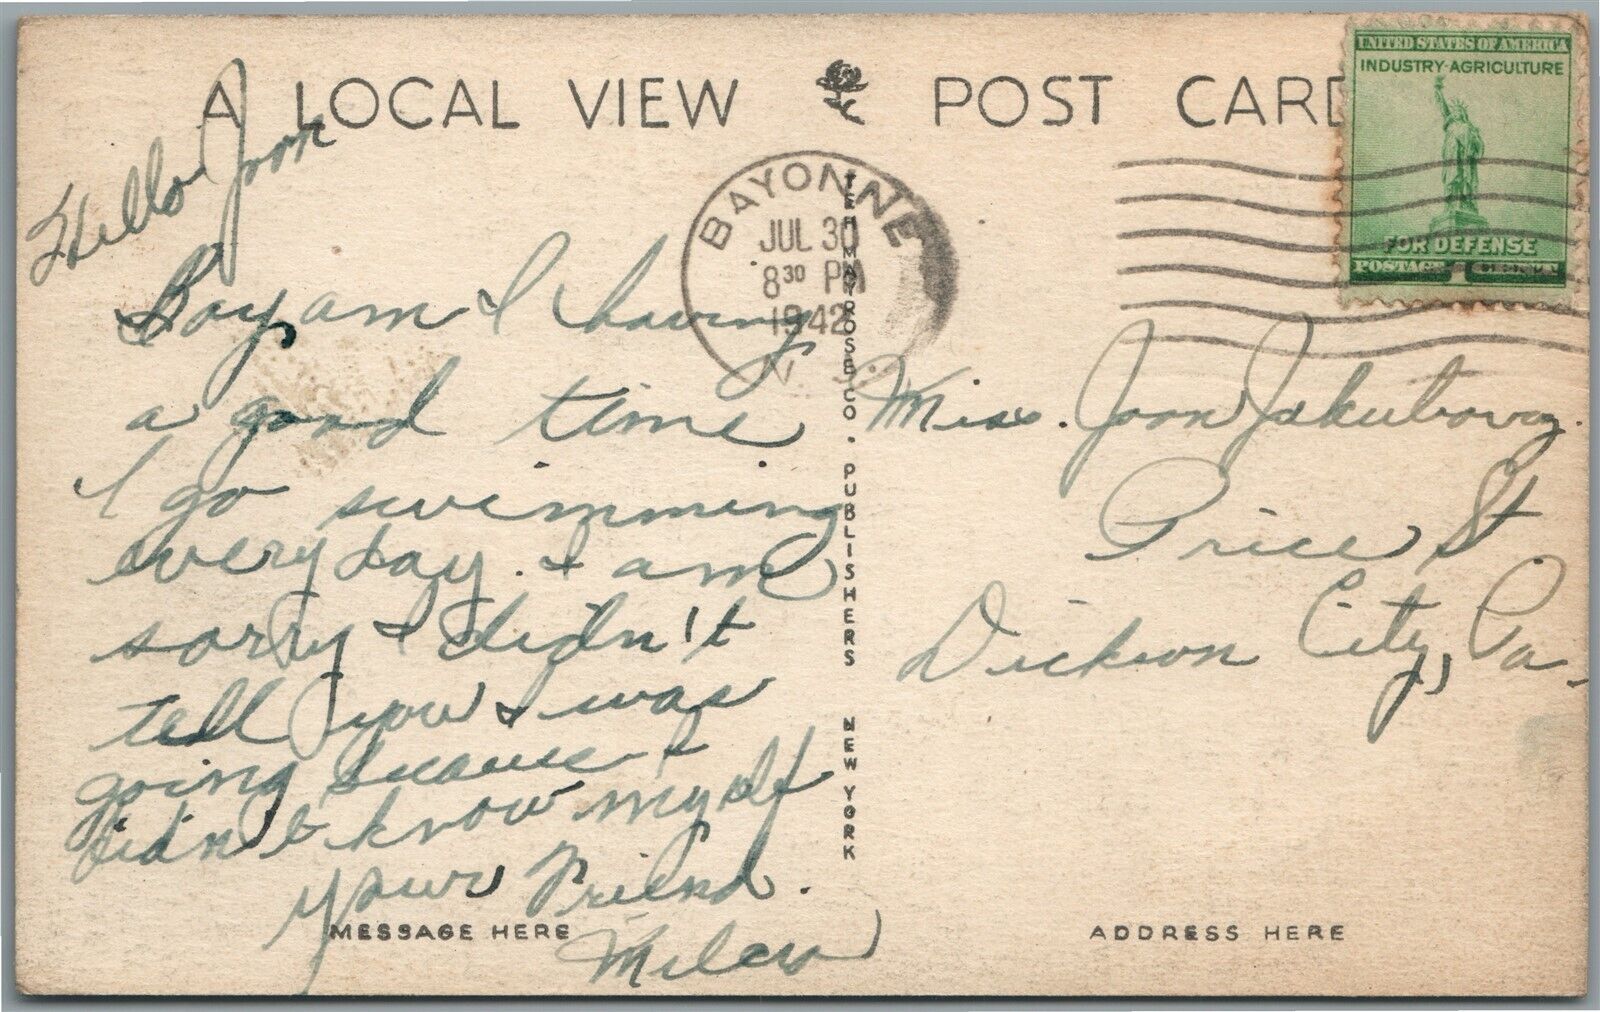 A LOCAL VIEW POST CARD
UNITED STATES OF AMERICA
INDUSTRY-AGRICULTURE
FOR DEFENSE
POSTAGE 1
BAYONNE
JUL 30
8 30 PM
1942
N. J.
THE MAYROSE CO. PUBLISHERS NEW YORK
Hello Joan
Boy, am I having
a good time
I go swimming
every day. I am
sorry I didn't
tell you I was
going because I
didn't know myself
Your Friend.
MESSAGE HERE
Miss. Joan
Price St
Dickson City, Pa.
ADDRESS HERE